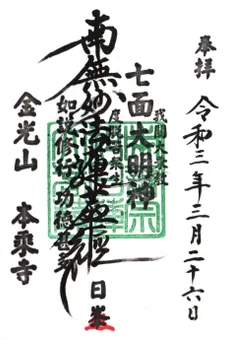 奉拝
令和三年三月二十六日
七面大明神
南無妙法蓮華経
如説修行功徳甚多
日
金光山
本乘寺